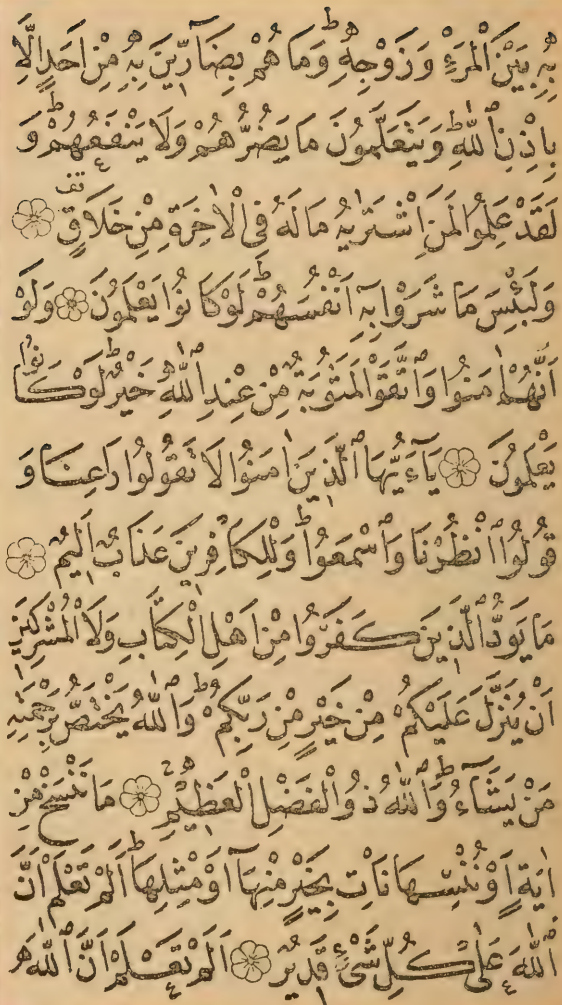 بِهِ بَيْنَ الْمَرْءِ وَزَوْجِهِ ۭ وَمَا هُمْ بِضَارِّينَ بِهِ مِنْ اَحَدٍ اِلَّا
بِاِذْنِ اللّٰهِ ۭ وَيَتَعَلَّمُونَ مَا يَضُرُّهُمْ وَلَا يَنْفَعُهُمْ ۭ وَ
لَقَدْ عَلِمُوا لَمَنِ اشْتَرٰيهُ مَا لَهُ فِى الْاٰخِرَةِ مِنْ خَلَاقٍ ۝
وَلَبِئْسَ مَا شَرَوْا بِهِٓ اَنْفُسَهُمْ ۭ لَوْ كَانُوا يَعْلَمُونَ ۝ وَلَوْ
اَنَّهُمْ اٰمَنُوا وَاتَّقَوْا لَمَثُوبَةٌ مِنْ عِنْدِ اللّٰهِ خَيْرٌ ۭ لَوْ كَانُوا
يَعْلَمُونَ ۝ يَآءَيُّهَا الَّذِينَ اٰمَنُوا لَا تَقُولُوا رَاعِنَا وَ
قُولُوا انْظُرْنَا وَاسْمَعُوا ۭ وَلِلْكَافِرِينَ عَذَابٌ اَلِيمٌ ۝
مَا يَوَدُّ الَّذِينَ كَفَرُوا مِنْ اَهْلِ الْكِتَابِ وَلَا الْمُشْرِكِينَ
اَنْ يُنَزَّلَ عَلَيْكُمْ مِنْ خَيْرٍ مِنْ رَبِّكُمْ ۭ وَاللّٰهُ يَخْتَصُّ بِرَحْمَتِهِ
مَنْ يَشَآءُ ۭ وَاللّٰهُ ذُو الْفَضْلِ الْعَظِيمِ ۝ مَا نَنْسَخْ مِنْ
اٰيَةٍ اَوْ نُنْسِهَا نَاْتِ بِخَيْرٍ مِنْهَآ اَوْ مِثْلِهَا ۭ اَلَمْ تَعْلَمْ اَنَّ
اللّٰهَ عَلٰى كُلِّ شَىْءٍ قَدِيرٌ ۝ اَلَمْ تَعْلَمْ اَنَّ اللّٰهَ